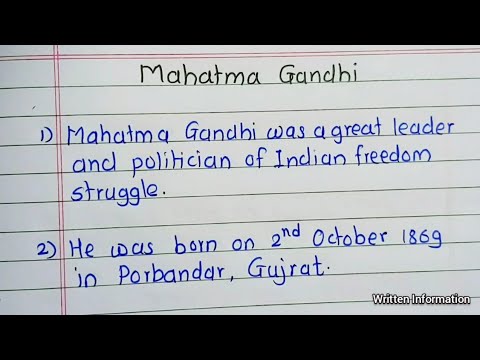 Mahatma Gandhi
1) Mahatma Gandhi was a great leader
and politician of Indian freedom
struggle.
2) He was born on 2nd October 1869
in Porbandar, Gujrat.
Written Information